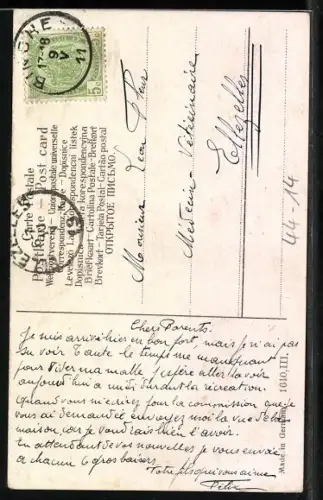 BINCHE
17-18
9
V
11
5
Carte postale
Postkarte – Post card
Weltpostverein – Union postale universelle
Korrespondenzkarte – Dopisnice
Levelező-Lap – Korespondencni listek
Dopisnica – Karta korespondencyjna
Briefkaart – Cartolina Postale – Brefkort
Brevkort – Tarjeta Postal – Cartão postal
ОТКРЫТОЕ ПИСЬМО
Monsieur Léon
Médecin-Vétérinaire
Ellezelles
44-14
Made in Germany 1610,III.
Chers Parents.
Je suis arrivé hier en bon port, mais je n'ai pas
pu voir Tante le temps me manquant
pour vider ma malle. J'espère aller la voir
aujourd'hui à midi durant la récréation.
Quand vous m'écrirez pour la commission que je
vous ai demandée envoyez moi la vue de la
maison, car je voudrais bien l'avoir.
En attendant de vos nouvelles je vous envoie
à chacun 6 gros baisers.
Votre fils qui vous aime